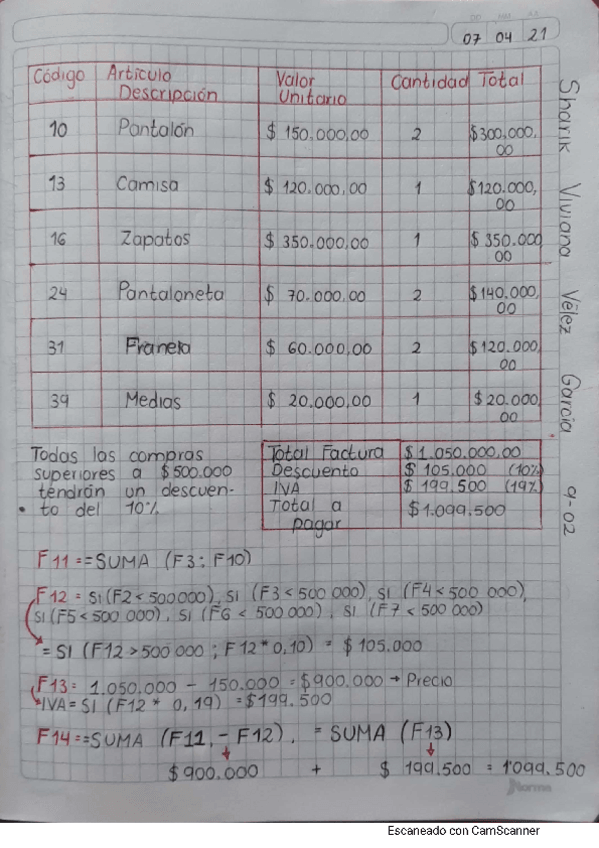 07 04 21
Código Artículo Descripción Valor Unitario Cantidad Total
10 Pantalón $ 150.000,00 2 $300,000,00
13 Camisa $ 120.000,00 1 $120.000,00
16 Zapatos $ 350.000,00 1 $ 350.000,00
24 Pantaloneta $ 70.000,00 2 $140.000,00
31 Franela $ 60.000,00 2 $120.000,00
39 Medias $ 20.000,00 1 $20.000,00
Todas las compras
superiores a $500.000
tendrán un descuen-
to del 10%
Total Factura $1.050.000,00
Descuento $ 105.000 (10%)
IVA $ 199.500 (19%)
Total a pagar $1.099.500
F11==SUMA (F3:F10)
F12 = SI(F2<500000), SI (F3<500 000), SI (F4<500 000),
SI(F5<500 000), SI (F6 < 500 000), SI (F7<500 000)
= SI (F12>500 000 ; F12*0,10) = $ 105.000
F13= 1.050.000 - 150.000 = $900.000 → Precio
IVA= SI (F12 * 0,19) = $199.500
F14==SUMA (F11,-F12), = SUMA (F13)
$900.000 + $ 199.500 = 1'099.500
Sharik Viviana Vélez García 9-02
Norma
Escaneado con CamScanner